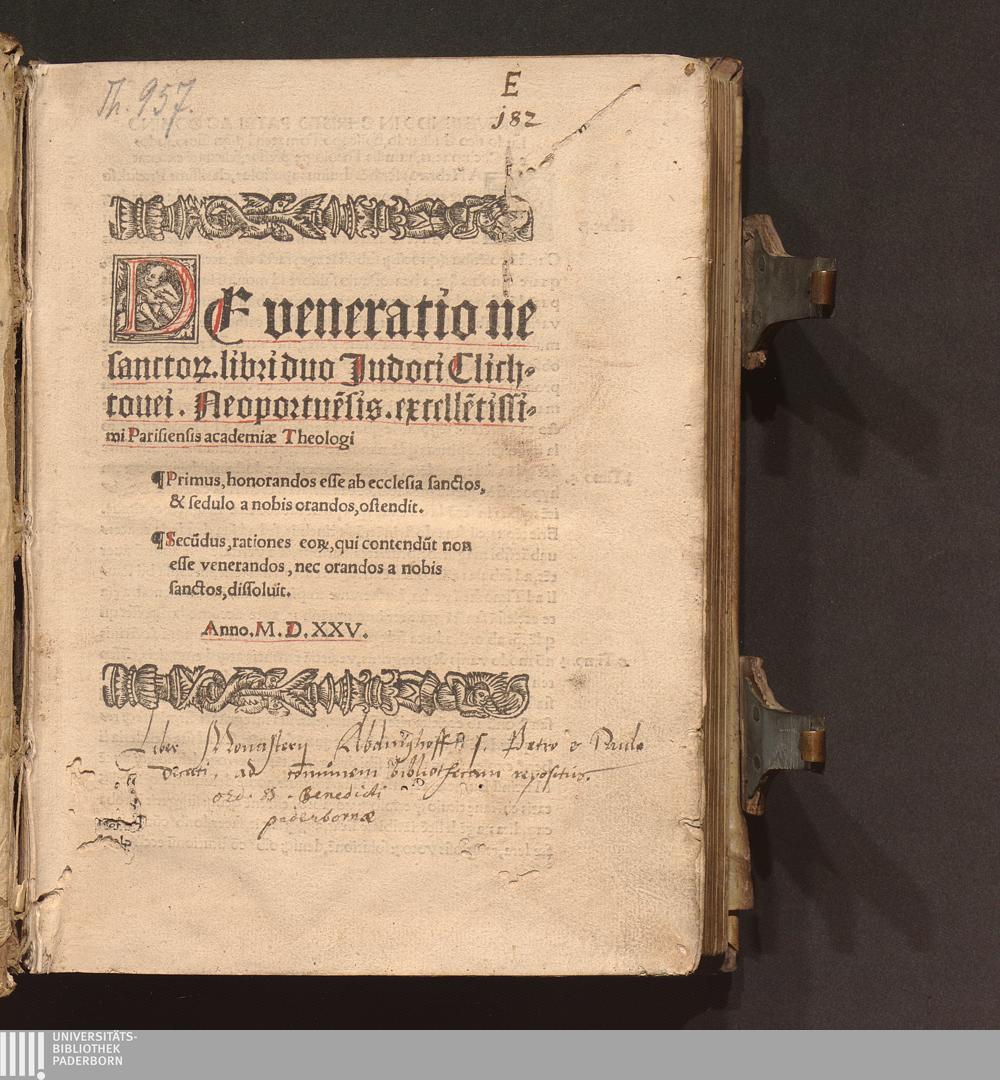 Th. 957.
E
182
DE veneratione
sanctoꝝ. libri duo Judoci Clich-
touei. Neoportuēsis. excellētissi-
mi Parisiensis academiæ Theologi
¶Primus, honorandos esse ab ecclesia sanctos,
& sedulo a nobis orandos, ostendit.
¶Secūdus, rationes eoꝝ, qui contendūt non
esse venerandos, nec orandos a nobis
sanctos, dissoluit.
Anno. M. D. XXV.
Liber Monasterij Abdinghoff S. Petro & Paulo
Dicati, ad com̄unem bibliothecam repositus.
ord. S. Benedicti
paderbornæ
UNIVERSITÄTS-
BIBLIOTHEK
PADERBORN